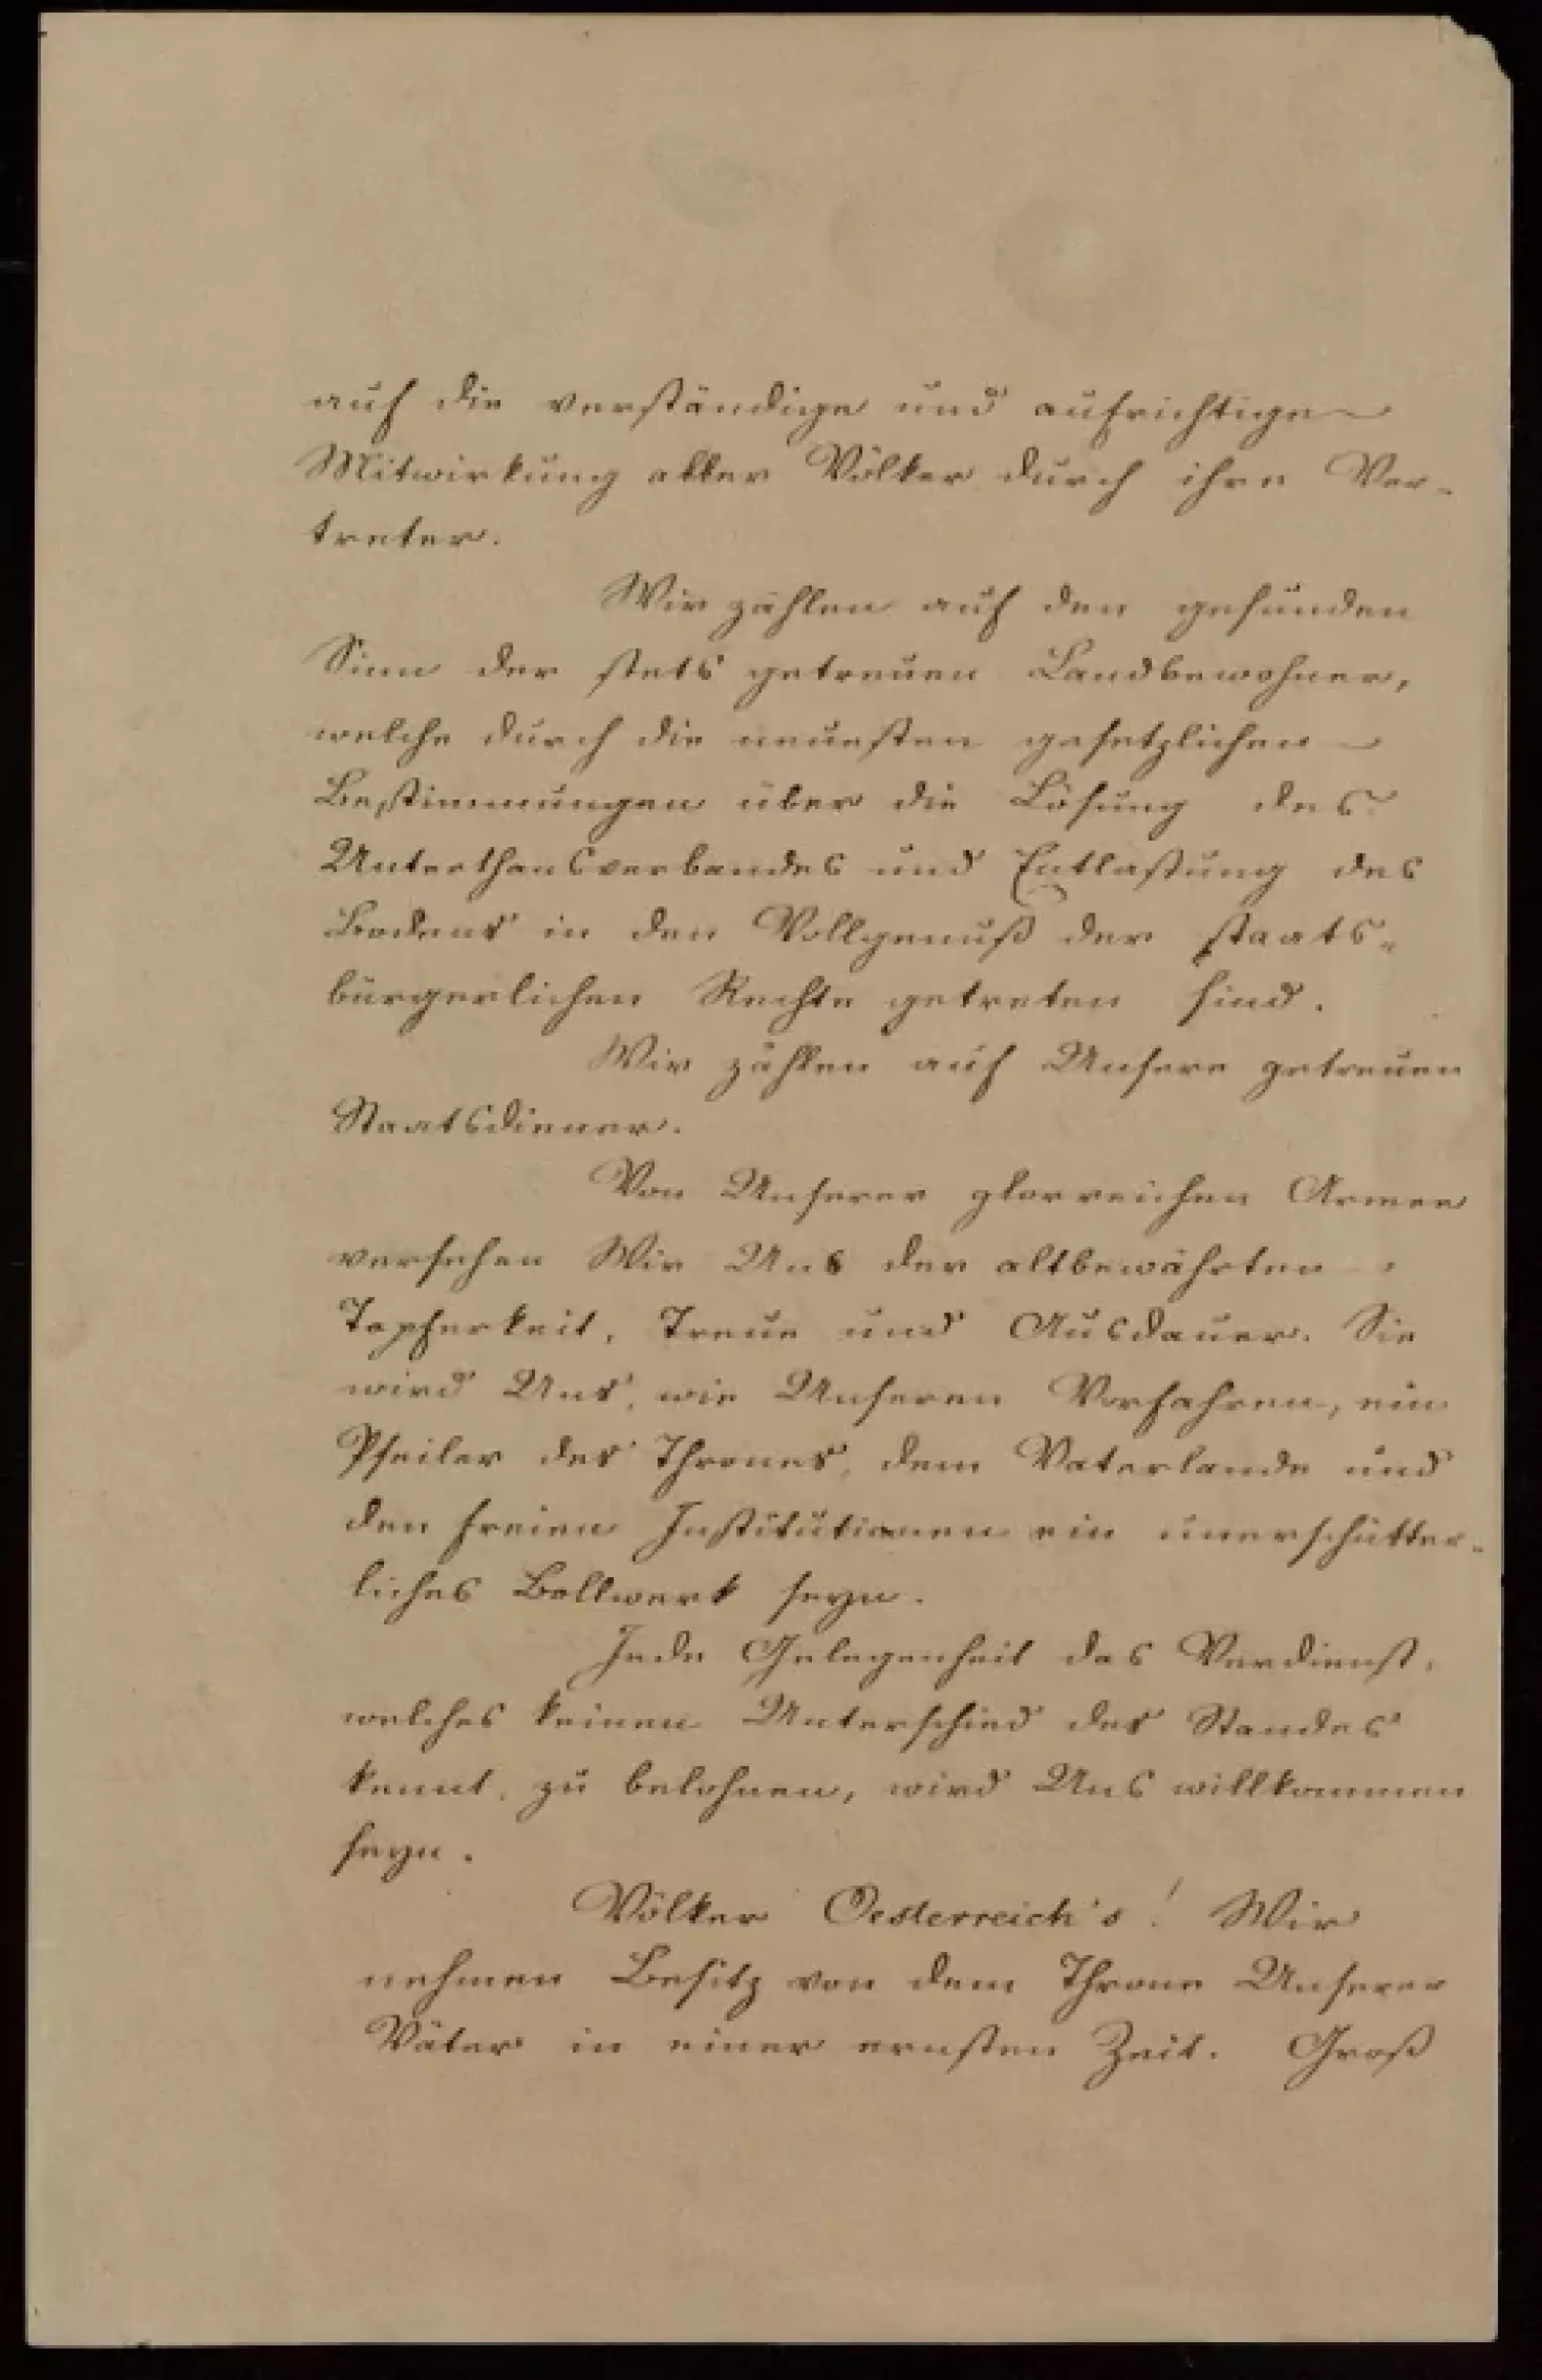 auf die verständige und aufrichtige
Mitwirkung aller Völker durch ihre Ver-
treter.
Wir zählen auf den gesunden
Sinn der stets getreuen Landbewohner,
welche durch die neuesten gesetzlichen
Bestimmungen über die Lösung des
Unterthansverbandes und Entlastung des
Bodens in den Vollgenuß der staats-
bürgerlichen Rechte getreten sind.
Wir zählen auf Unsere getreuen
Staatsdiener.
Von Unserer glorreichen Armee
versehen Wir Uns der altbewährten
Tapferkeit, Treue und Ausdauer. Sie
wird Uns, wie Unseren Vorfahren, ein
Pfeiler des Thrones, dem Vaterlande und
den freien Institutionen ein unerschütter-
liches Bollwerk seyn.
Jede Gelegenheit das Verdienst,
welches keinen Unterschied des Standes
kennt, zu belohnen, wird Uns willkommen
seyn.
Völker Oesterreich's! Wir
nehmen Besitz von dem Throne Unserer
Väter in einer ernsten Zeit. Groß